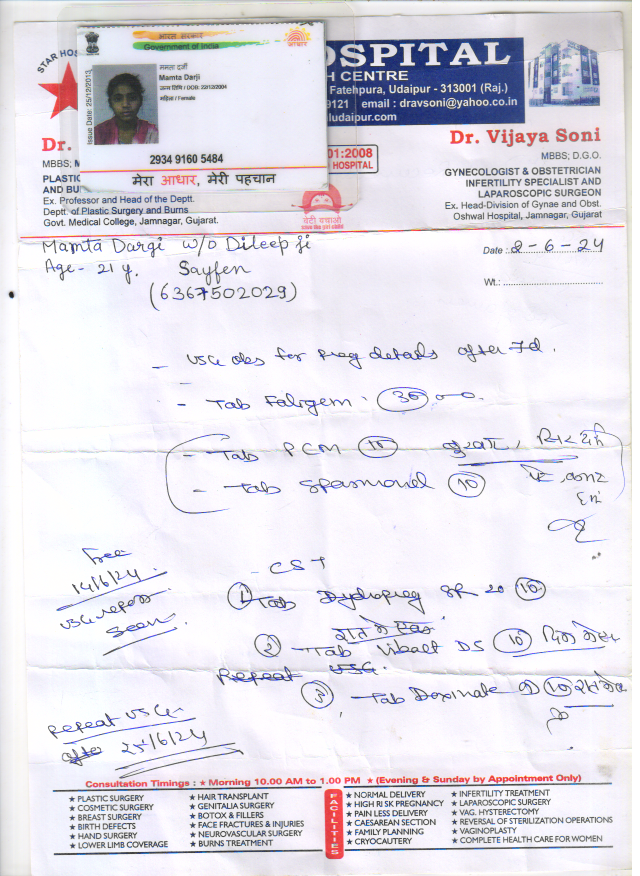 STAR HOS
HOSPITAL
H CENTRE
Fatehpura, Udaipur - 313001 (Raj.)
9121 email : dravsoni@yahoo.co.in
ludaipur.com
भारत सरकार
Government of India
आधार
Issue Date: 25/12/2013
ममता दर्जी
Mamta Darji
जन्म तिथि / DOB: 22/12/2004
महिला / Female
2934 9160 5484
मेरा आधार, मेरी पहचान
01:2008
HOSPITAL
Dr.
MBBS; M
PLASTIC
AND BU
Ex. Professor and Head of the Deptt.
Deptt. of Plastic Surgery and Burns
Govt. Medical College, Jamnagar, Gujarat.
बेटी बचाओ
Dr. Vijaya Soni
MBBS; D.G.O.
GYNECOLOGIST & OBSTETRICIAN
INFERTILITY SPECIALIST AND
LAPAROSCOPIC SURGEON
Ex. Head-Division of Gynae and Obst.
Oshwal Hospital, Jamnagar, Gujarat
Mamta Dargi w/o Dileep ji
Age - 21 y. Sayfen
(6367502029)
Date : 8-6-24
Wt.:
- USG obs for Preg details after 7d.
- Tab Faligem (30)
- Tab PCM (10)
- Tab Spasmonel (10)
14/6/24
USG repeat
scan
CST
① Tab Dydropreg SR 20 (10)
② Tab Vibact DS (10)
Repeat USG
③ Tab Doxinate (10)
Repeat USG
after 25/6/24
Consultation Timings : ★ Morning 10.00 AM to 1.00 PM ★ (Evening & Sunday by Appointment Only)
★ PLASTIC SURGERY
★ COSMETIC SURGERY
★ BREAST SURGERY
★ BIRTH DEFECTS
★ HAND SURGERY
★ LOWER LIMB COVERAGE
★ HAIR TRANSPLANT
★ GENITALIA SURGERY
★ BOTOX & FILLERS
★ FACE FRACTURES & INJURIES
★ NEUROVASCULAR SURGERY
★ BURNS TREATMENT
FACILITIES
★ NORMAL DELIVERY
★ HIGH RISK PREGNANCY
★ PAIN LESS DELIVERY
★ CAESAREAN SECTION
★ FAMILY PLANNING
★ CRYOCAUTERY
★ INFERTILITY TREATMENT
★ LAPAROSCOPIC SURGERY
★ VAG. HYSTERECTOMY
★ REVERSAL OF STERILIZATION OPERATIONS
★ VAGINOPLASTY
★ COMPLETE HEALTH CARE FOR WOMEN